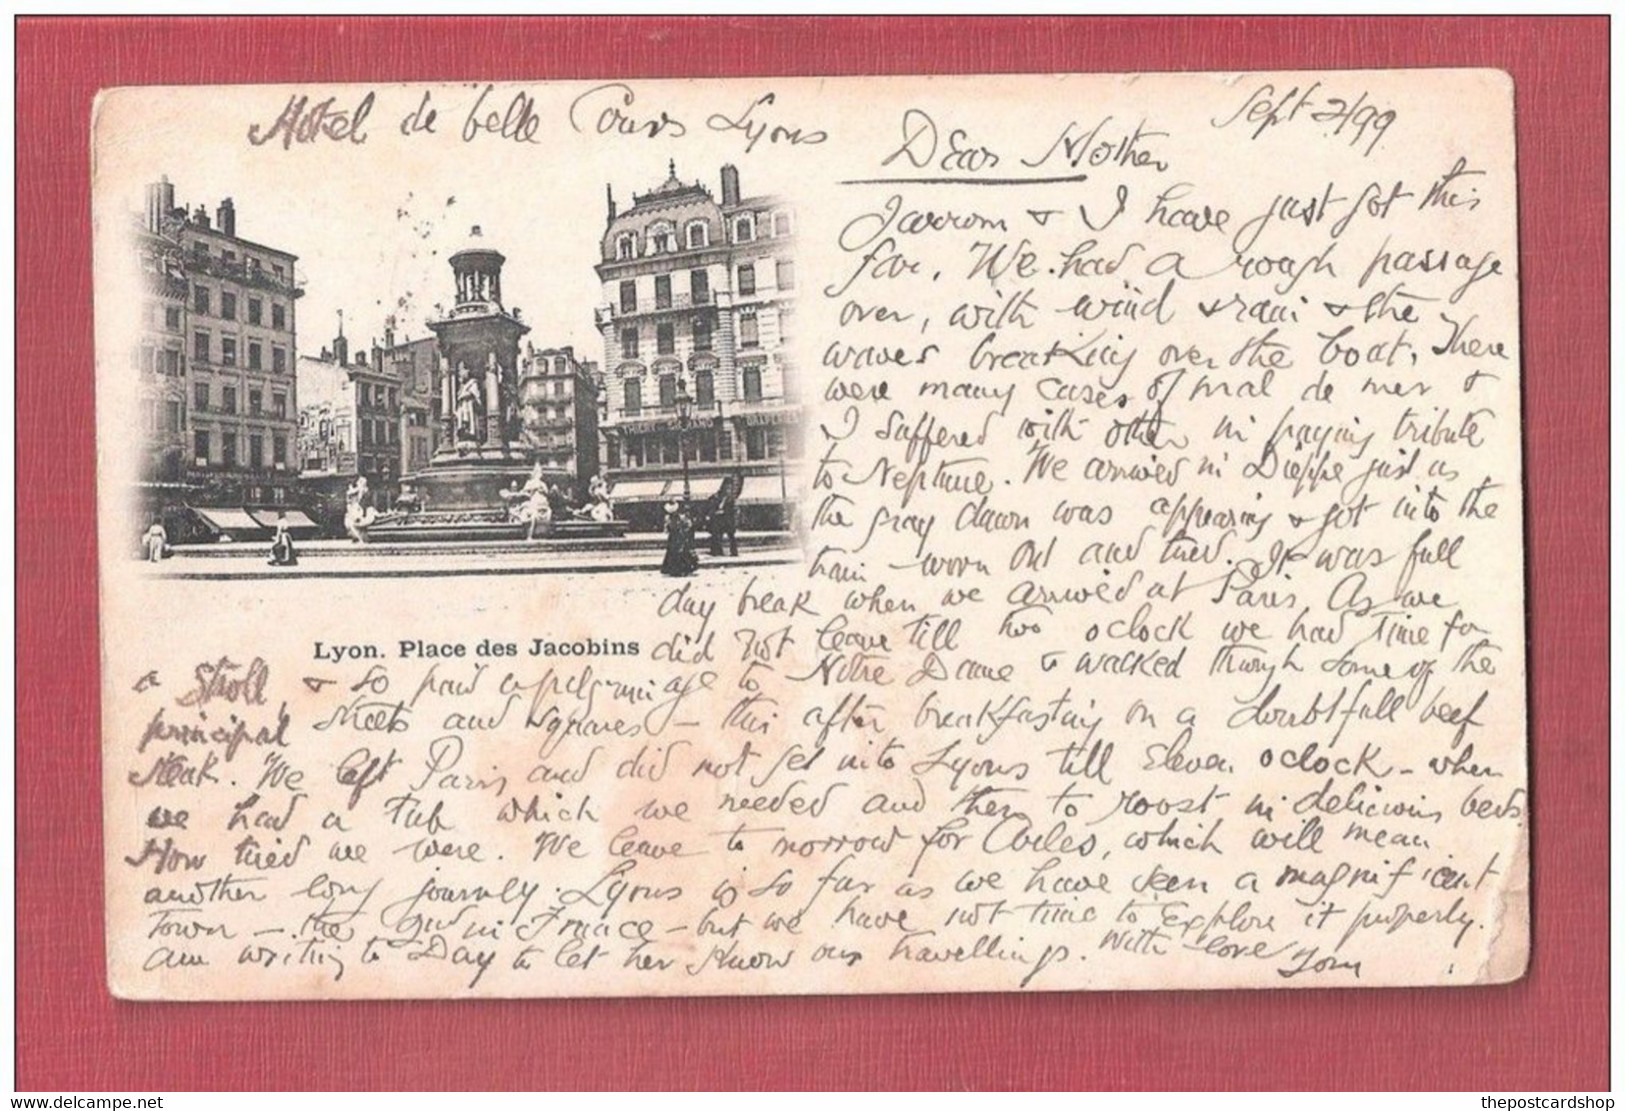 Hotel de belle Cours Lyons
Sept 2/99
Dear Mother
Jarrom & I have just got this
far. We had a rough passage
over, with wind & rain & the
waves breaking over the boat. There
were many cases of mal de mer &
I suffered with other in paying tribute
to Neptune. We arrived in Dieppe just as
the gray dawn was appearing & got into the
train worn out and tired. It was full
day break when we arrived at Paris. As we
Lyon. Place des Jacobins
did not leave till two o clock we had time for
a stroll, & so paid a pilgrimage to Notre Dame & walked through some of the
principal streets and squares - this after breakfasting on a doubtfull beef
steak. We left Paris and did not get into Lyons till Eleven o clock - when
we had a Tub which we needed and then to roost in delicious beds.
How tired we were. We leave to morrow for Arles, which will mean
another long journey. Lyons is so far as we have seen a magnificent
town - the 2nd in France - but we have not time to Explore it properly.
am writing to Day to let her Know our travellings. With love Tom
Delcampe.net
thepostcardshop